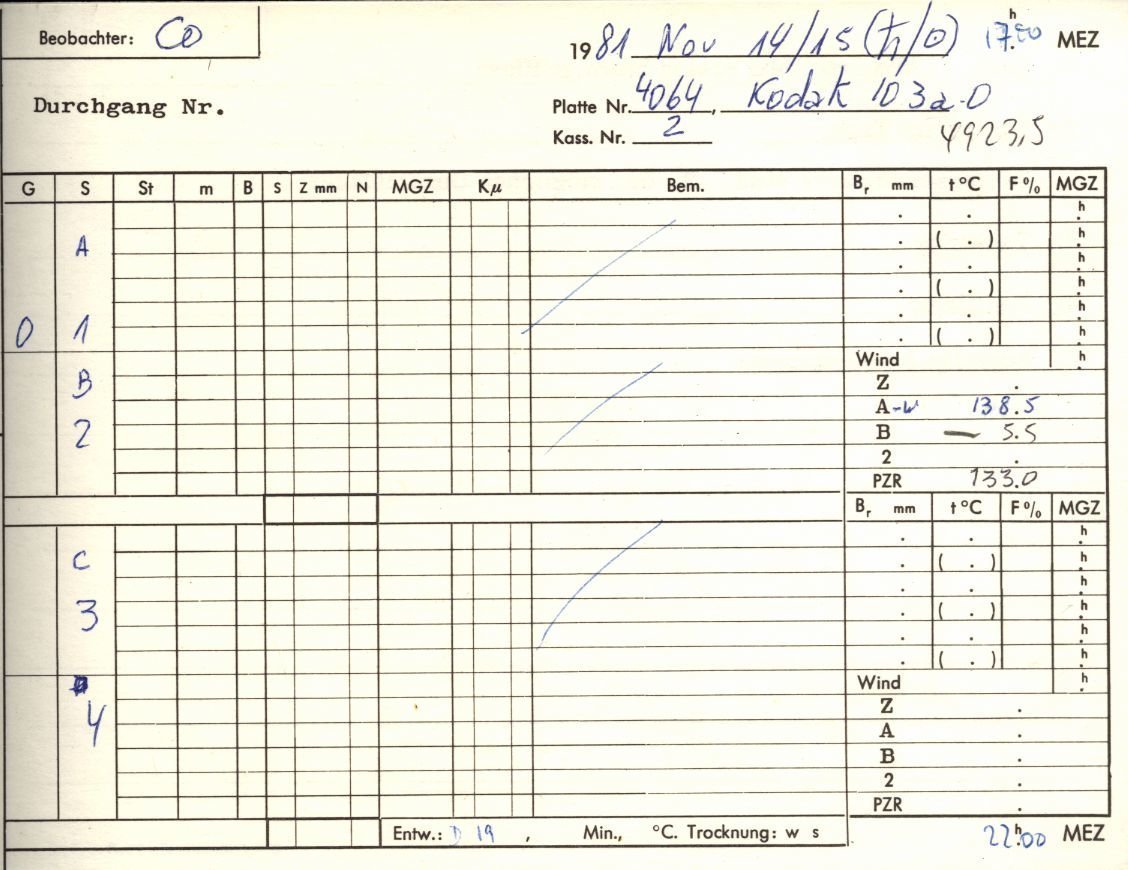 Beobachter: CO
1981 Nov 14/15 (♄/☉) 17h00 MEZ
Durchgang Nr.
Platte Nr. 4064, Kodak 103a-O
Kass. Nr. 2
4923,5
G S St m B S Z mm N MGZ Kµ Bem. Br mm t °C F% MGZ
. . h.
A . ( . ) h.
. . h.
. ( . ) h.
. . h.
0 1 . ( . ) h.
Wind h.
B Z .
A-W 138.5
2 B — 5.5
2 .
PZR 133.0
Br mm t °C F% MGZ
. . h.
C . ( . ) h.
. . h.
3 . ( . ) h.
. . h.
. ( . ) h.
Wind h.
4 Z .
A .
B .
2 .
PZR .
Entw.: D 19 , Min., °C. Trocknung: w s
22h00 MEZ